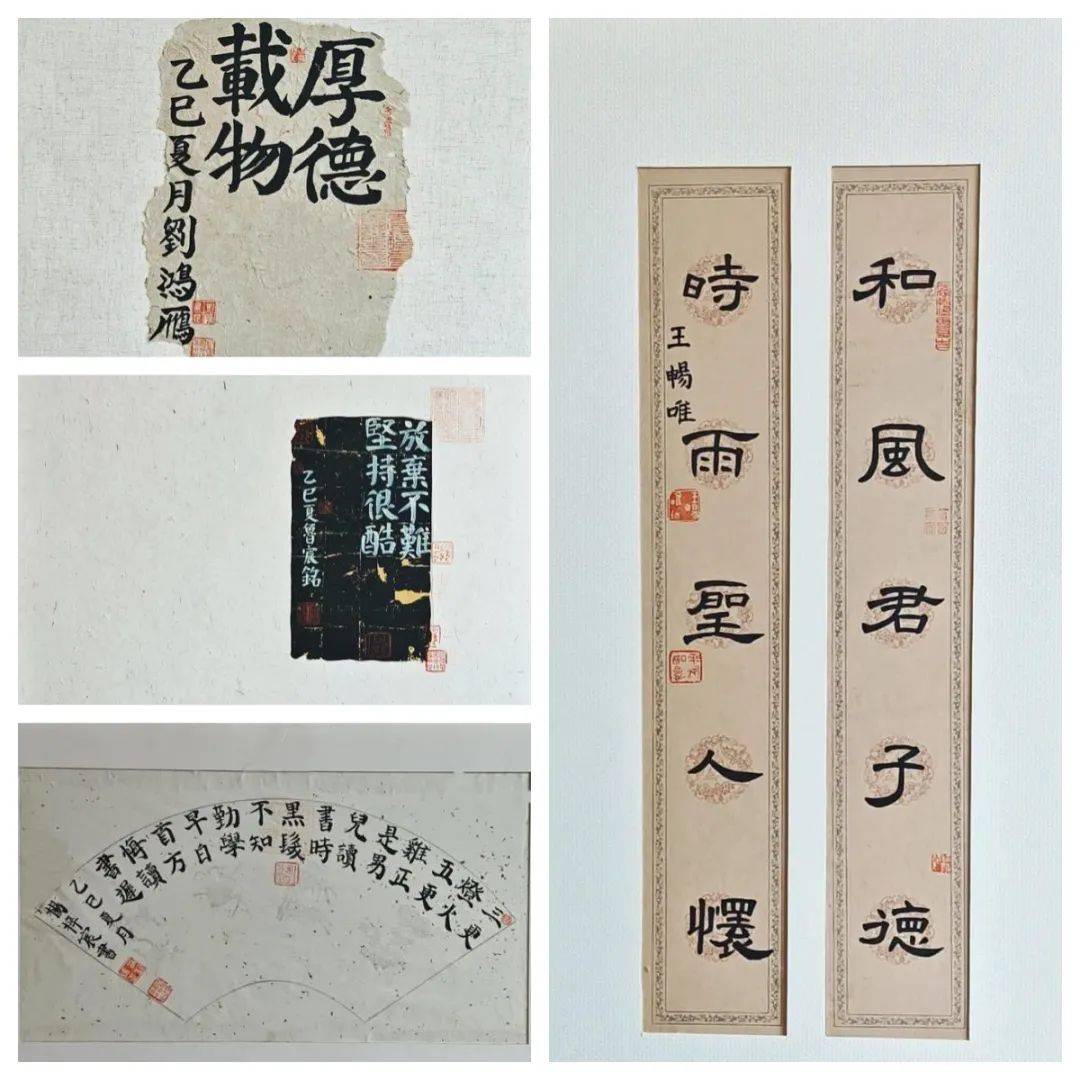 厚德
載物
乙巳夏月劉鴻雁
放棄不難
堅持很酷
乙巳夏魯宸銘
三更
燈火
五更
雞正
是男
兒讀
書時
黑髮
不知
勤學
早白
首方
悔讀
書遲
乙巳夏月
楊梓宸書
和風君子德
時雨聖人懷
王暢唯